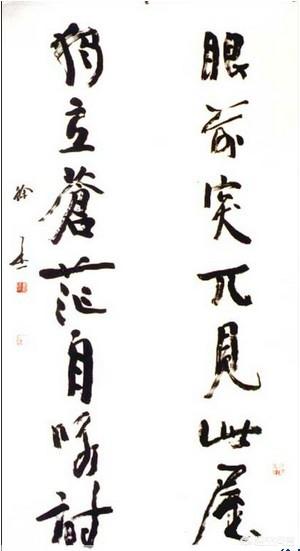 眼前突兀見此屋
獨立蒼茫自咏詩